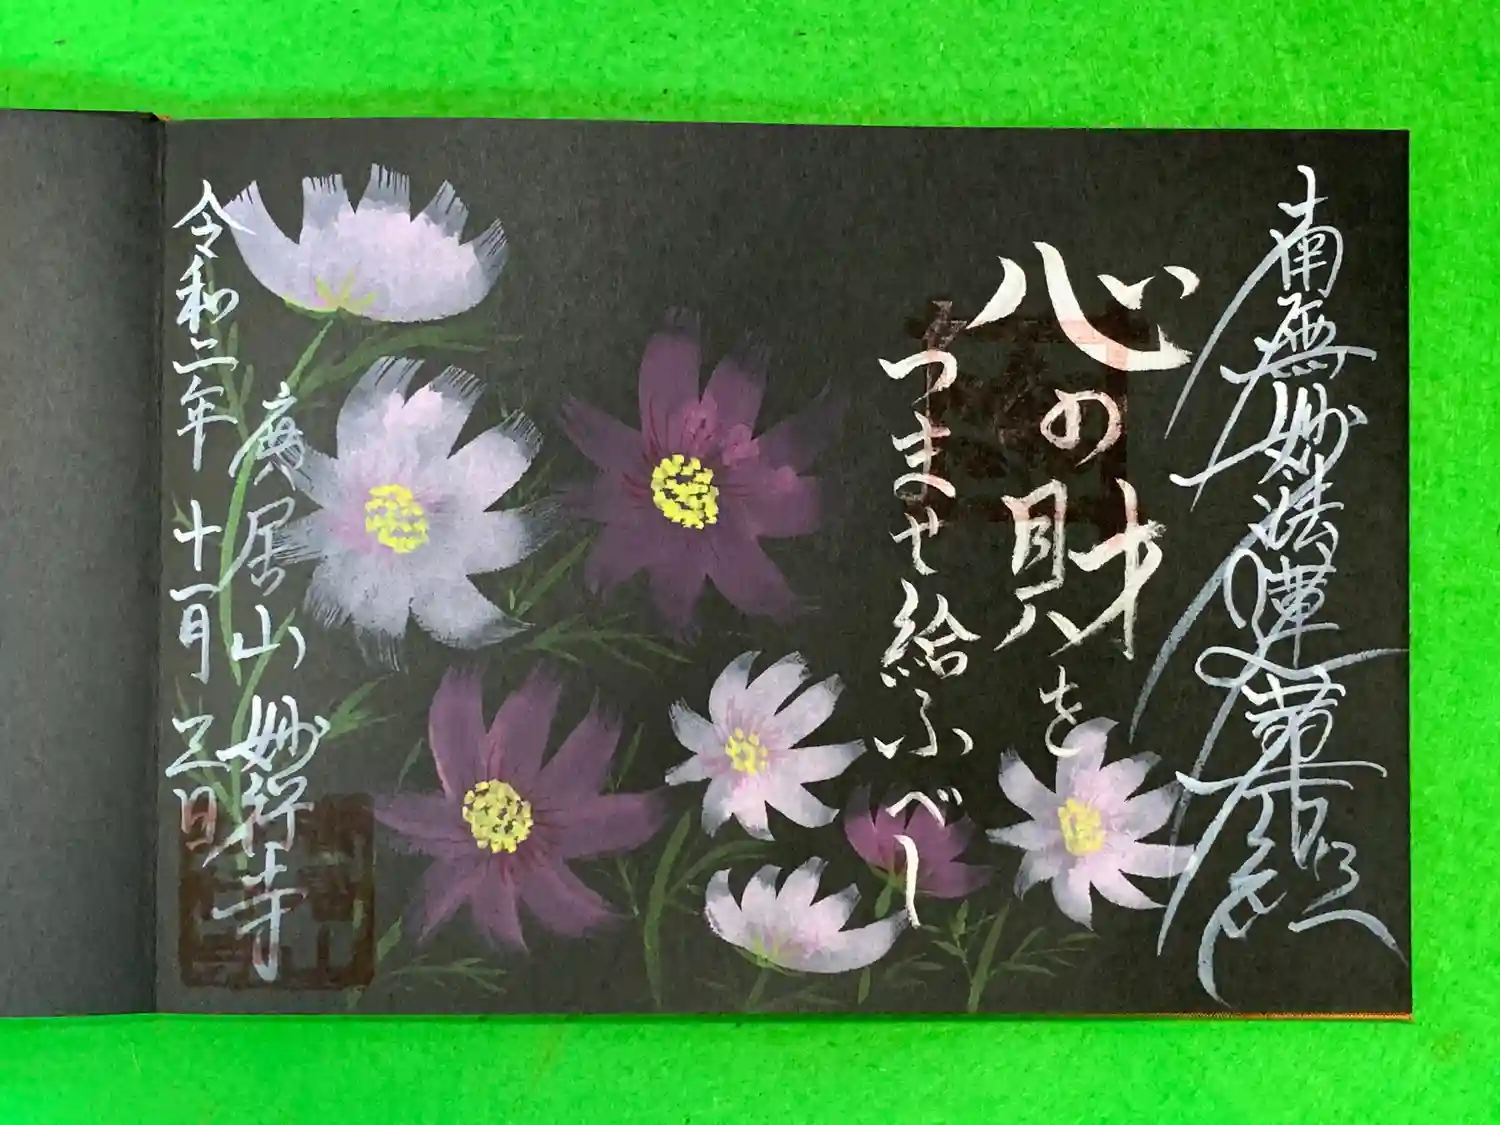 南無妙法蓮華経
心の財を
つませ給ふべし
廣居山 妙行寺
令和二年 十一月 三日